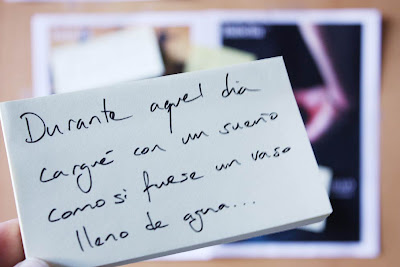 Durante aquel día
cargué con un sueño
como si fuese un vaso
lleno de agua...